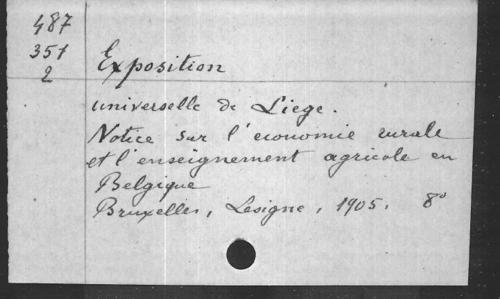 487
351
2
Exposition
universelle de Liege.
Notice sur l'economie rurale
et l'enseignement agricole en
Belgique
Bruxelles, Lesigne, 1905. 8°